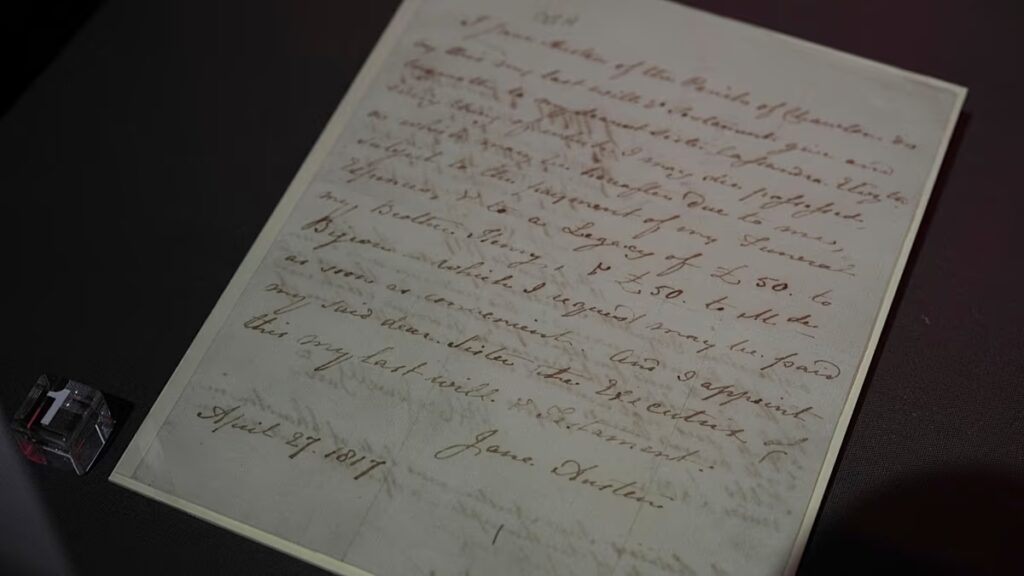 I Jane Austen of the Parish of Chawton do
by this my last will & Testament give and
bequeath to my dearest Sister Cassandra Elizth
every thing of which I may die possessed,
or which may be hereafter due to me,
subject to the payment of my Funeral
Expences, & to a Legacy of £50. to
my Brother Henry, & £50. to Mde
Bigeon - which I request may be paid
as soon as convenient. And I appoint
my said dear Sister the Executrix of
this my last will & Testament.
Jane Austen
April 27. 1817
1